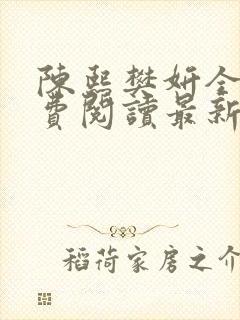 陳熙樊妍全
費閱讀最新
稻荷家房之介